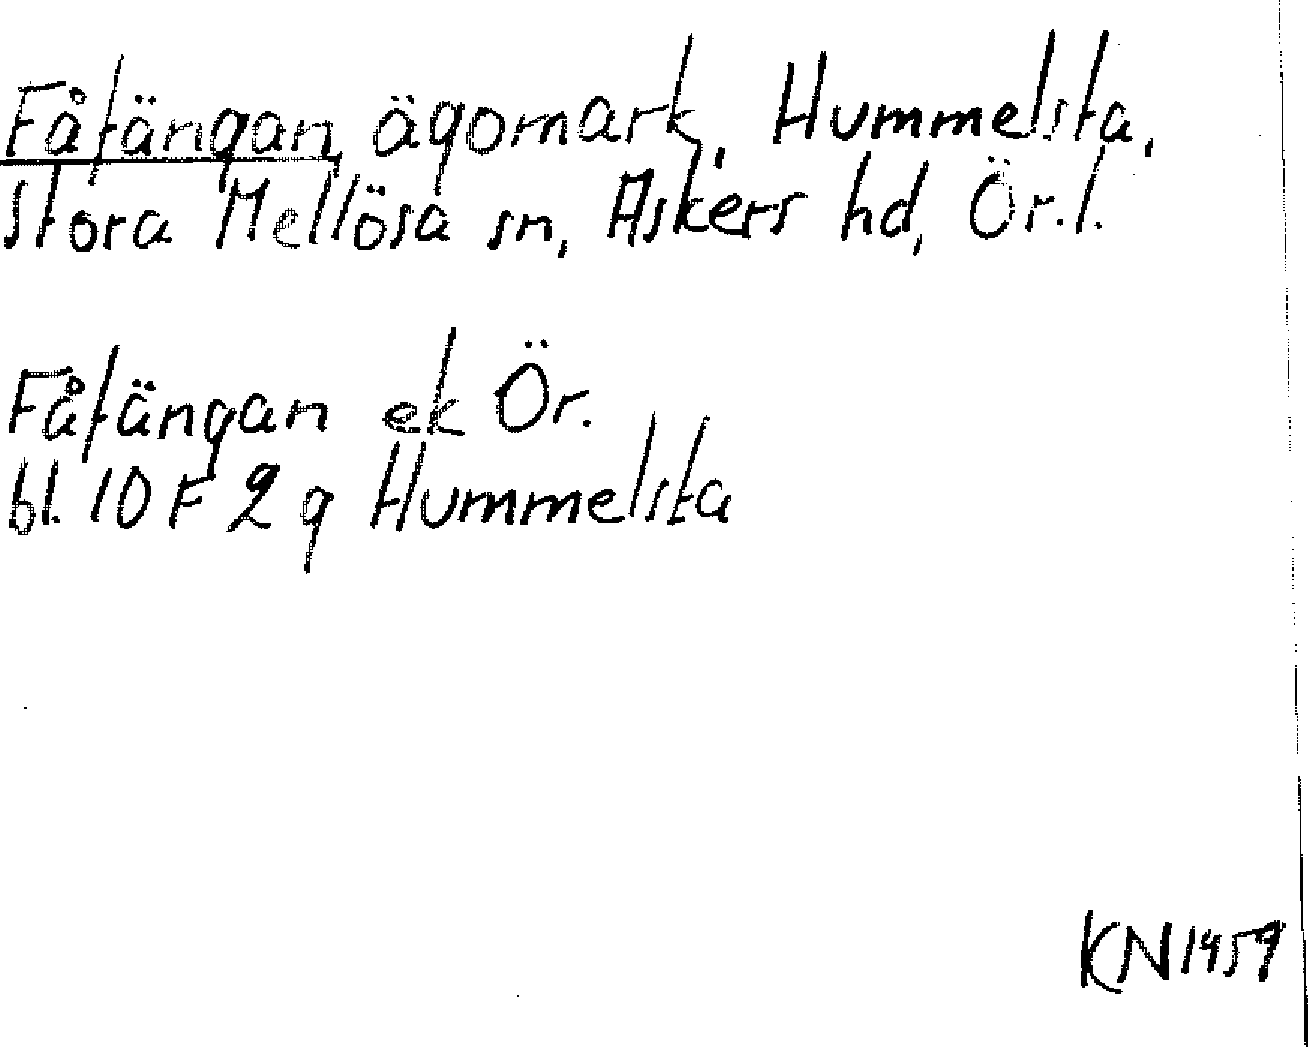 Fåfängan, ägomark, Hummelsta,
Stora Mellösa sn, Askers hd, Ör.l.
Fåfängan ek Ör.
bl. 10 F 2 g Hummelsta
KN 1959